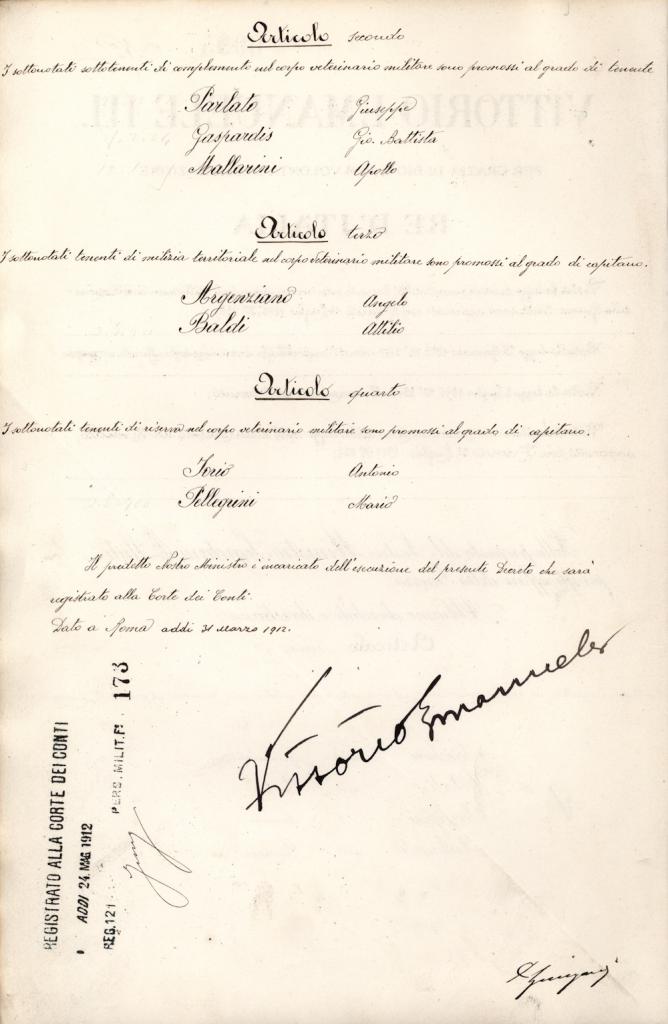 Articolo secondo
I sottonotati sottotenenti di complemento nel corpo veterinario militare sono promossi al grado di tenente
Parlato Giuseppe
Gaspardis Gio. Battista
Mallarini Apollo
Articolo terzo
I sottonotati tenenti di milizia territoriale nel corpo veterinario militare sono promossi al grado di capitano.
Argenziano Angelo
Baldi Attilio
Articolo quarto
I sottonotati tenenti di riserva nel corpo veterinario militare sono promossi al grado di capitano.
Iorio Antonio
Pellegrini Mario
Il predetto Nostro Ministro è incaricato dell'esecuzione del presente Decreto che sarà
registrato alla Corte dei Conti.
Dato a Roma addì 31 Marzo 1912.
Vittorio Emanuele
REGISTRATO ALLA CORTE DEI CONTI
ADDI 24 MAG 1912
REG. 121 PERS. MILIT. F! 173